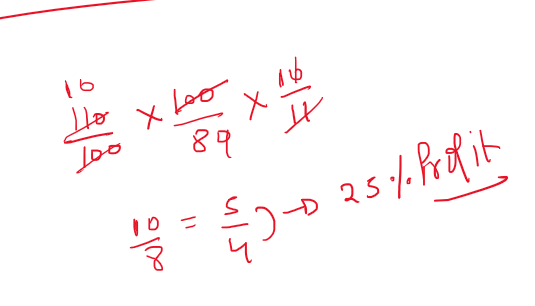 10
110/100 × 100/89 × 10/11
10/8 = 5/4) → 25% Profit